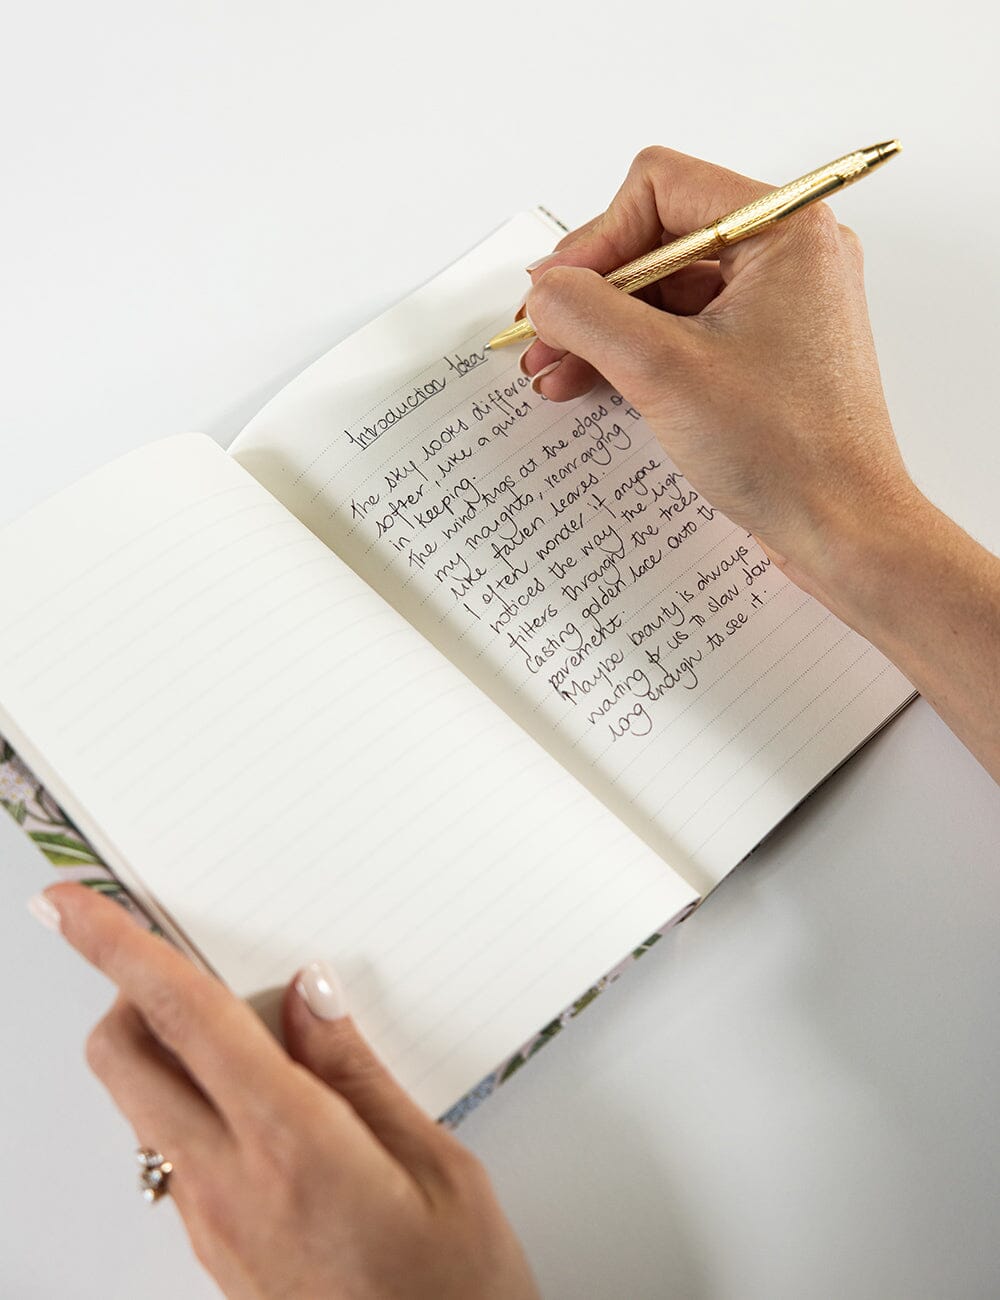 Introduction Idea
The sky looks differen
softer, like a quiet
in keeping.
The wind tugs at the edges o
my thoughts, rearranging t
like fallen leaves
I often wonder if anyone
notices the way the ligh
filters through the trees
casting golden lace onto th
pavement.
Maybe beauty is always
waiting for us to slow dow
long enough to see it.